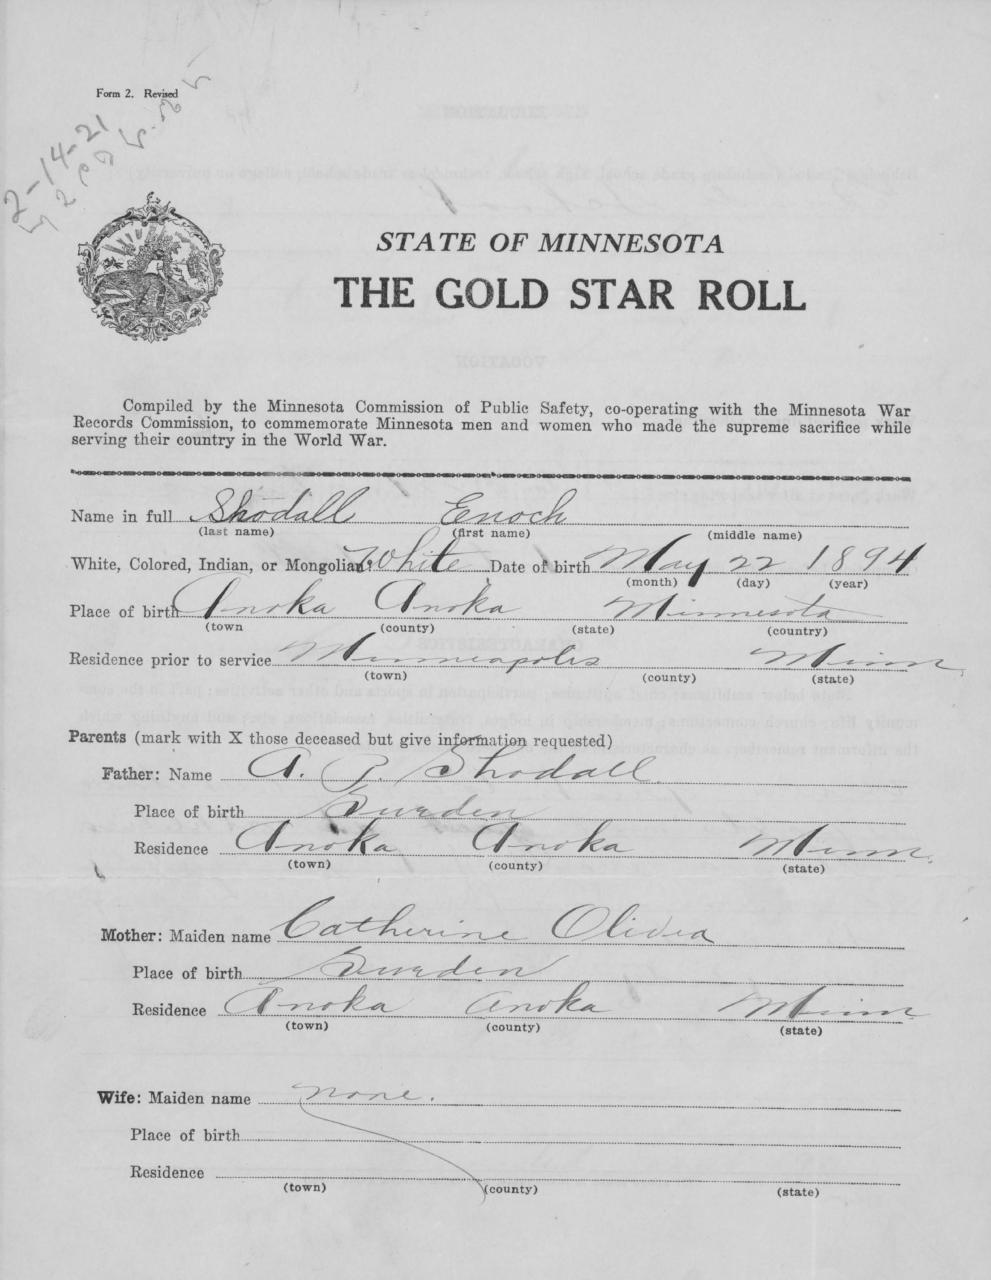 Form 2. Revised
2-14-21
STATE OF MINNESOTA
THE GOLD STAR ROLL
Compiled by the Minnesota Commission of Public Safety, co-operating with the Minnesota War
Records Commission, to commemorate Minnesota men and women who made the supreme sacrifice while
serving their country in the World War.
Name in full Shodall Enoch
(last name) (first name) (middle name)
White, Colored, Indian, or Mongolian? White Date of birth May 22 1894
(month) (day) (year)
Place of birth Anoka Anoka Minnesota
(town (county) (state) (country)
Residence prior to service Minneapolis Minn
(town) (county) (state)
Parents (mark with X those deceased but give information requested)
Father: Name A. P. Shodall
Place of birth Sweden
Residence Anoka Anoka Minn.
(town) (county) (state)
Mother: Maiden name Catherine Olivia
Place of birth Sweden
Residence Anoka Anoka Minn
(town) (county) (state)
Wife: Maiden name none.
Place of birth
Residence
(town) (county) (state)